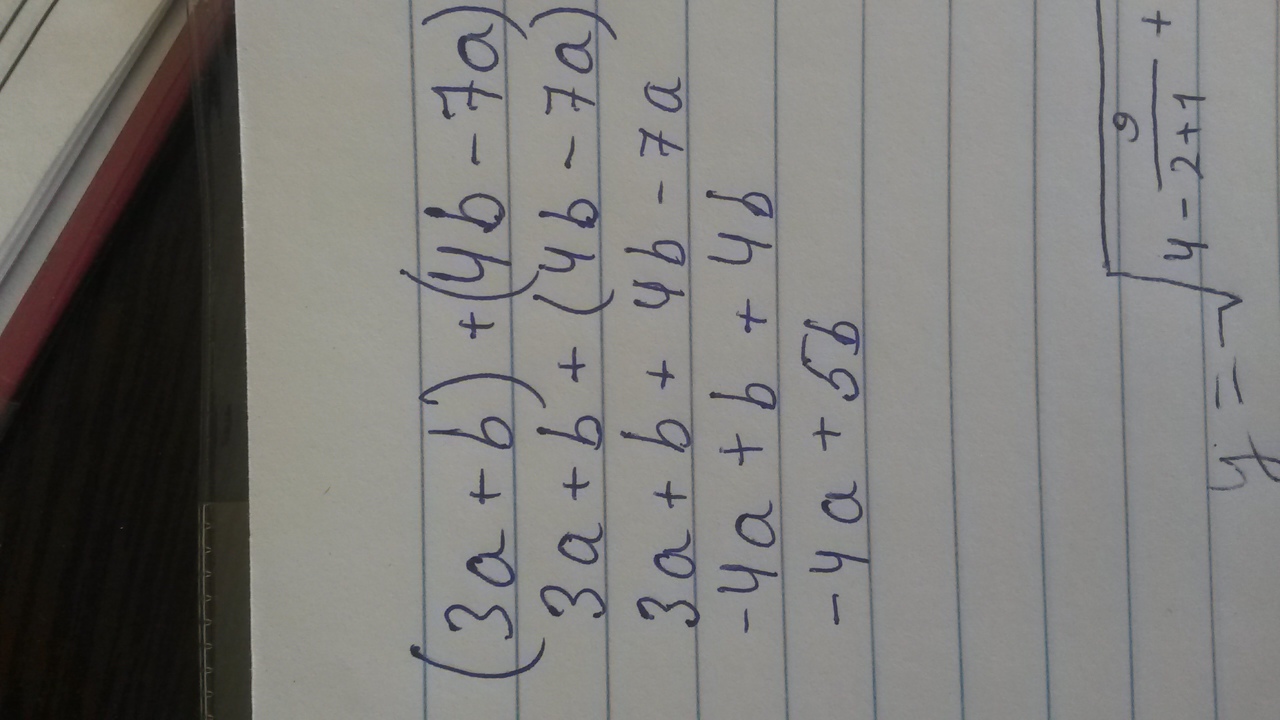 (3a + b) + (4b - 7a)
3a + b + (4b - 7a)
3a + b + 4b - 7a
-4a + b + 4b
- 4a + 5b
9
4 - 2+1 +
y = -√